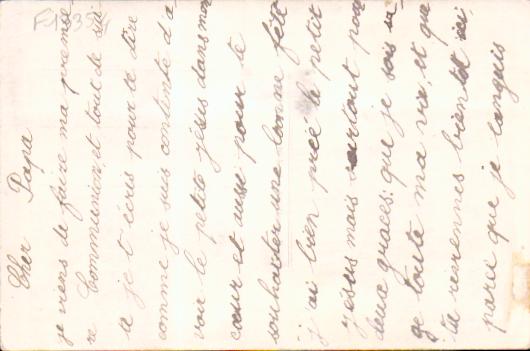 Cher Papa
je viens de faire ma premiè-
re Communion et tout de sui-
te je t'écris pour te dire
comme je suis contente d'a-
voir le petit jésus dans mon
cœur et aussi pour te
souhaiter une bonne fête
j'ai bien prié le petit
jesus mais surtout pour
deux graces: que je sois sa-
ge toute ma vie, et que
tu reviennes bientot ici.
parce que je languis